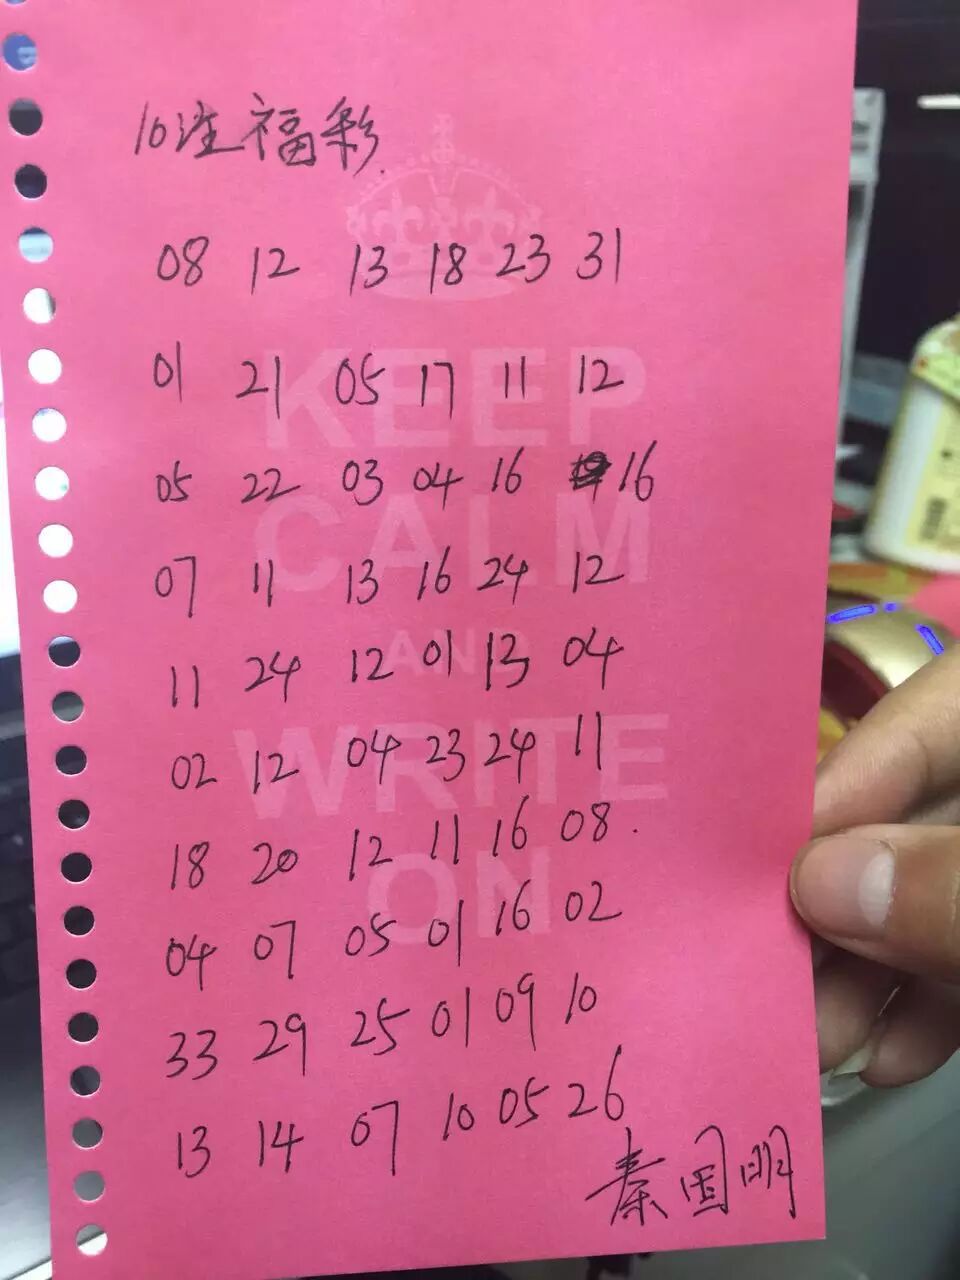 10注福彩.
08 12 13 18 23 31
01 21 05 17 11 12
05 22 03 04 16 16
07 11 13 16 24 12
11 24 12 01 13 04
02 12 04 23 24 11
18 20 12 11 16 08.
04 07 05 01 16 02
33 29 25 01 09 10
13 14 07 10 05 26
秦国明
KEEP
CALM
AND
WRITE
ON